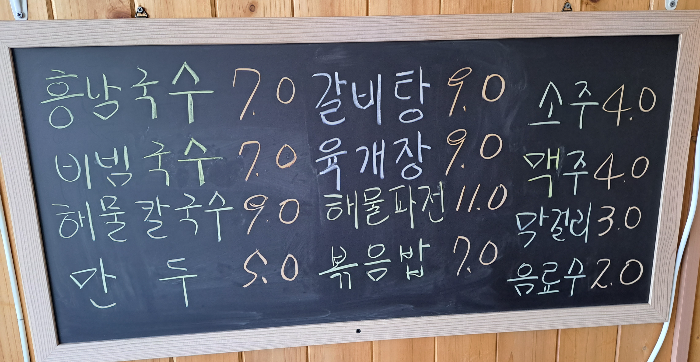 흥남국수 7.0 갈비탕 9.0 소주 4.0
비빔국수 7.0 육개장 9.0 맥주 4.0
해물칼국수 9.0 해물파전 11.0 막걸리 3.0
만두 5.0 볶음밥 7.0 음료수 2.0